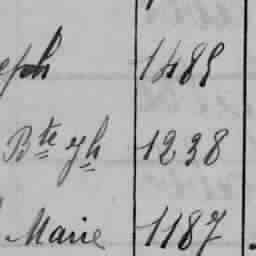 eph 1485
Bte gh 1238
Marie 1187